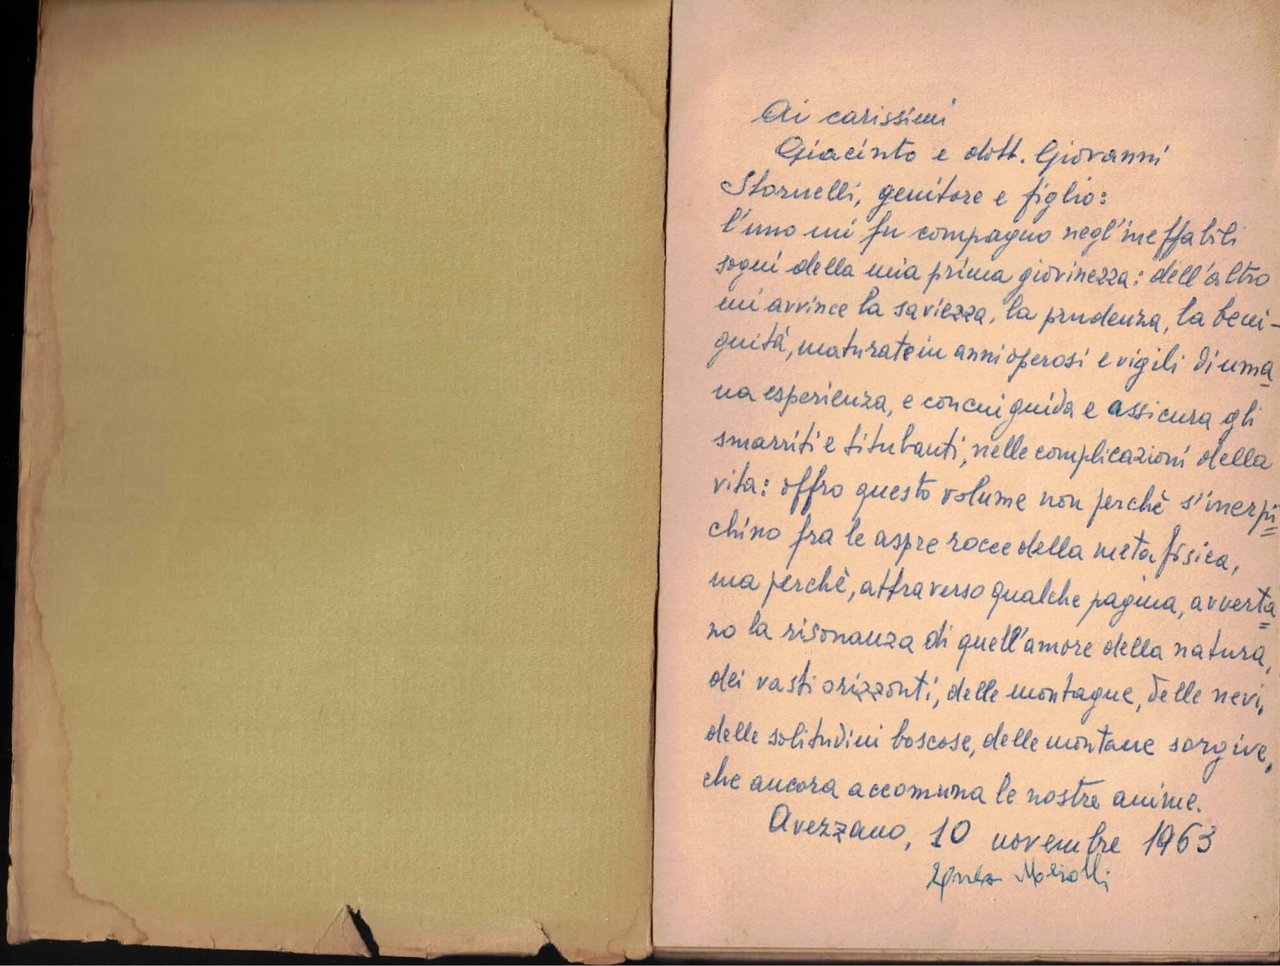 Ai carissimi
Giacinto e dott. Giovanni
Stornelli, genitore e figlio:
l'uno mi fu compagno negl'ineffabili
sogni della mia prima giovinezza: dell'altro
mi avvince la saviezza, la prudenza, la beni-
gnità, maturate in anni operosi e vigili di uma=
na esperienza, e con cui guida e assicura gli
smarriti e titubanti, nelle complicazioni della
vita: offro questo volume non perchè s'inerpi=
chino fra le aspre rocce della metafisica,
ma perchè, attraverso qualche pagina, avverta=
no la risonanza di quell'amore della natura,
dei vasti orizzonti, delle montagne, delle nevi,
delle solitudini boscose, delle montane sorgive,
che ancora accomuna le nostre anime.
Avezzano, 10 novembre 1963